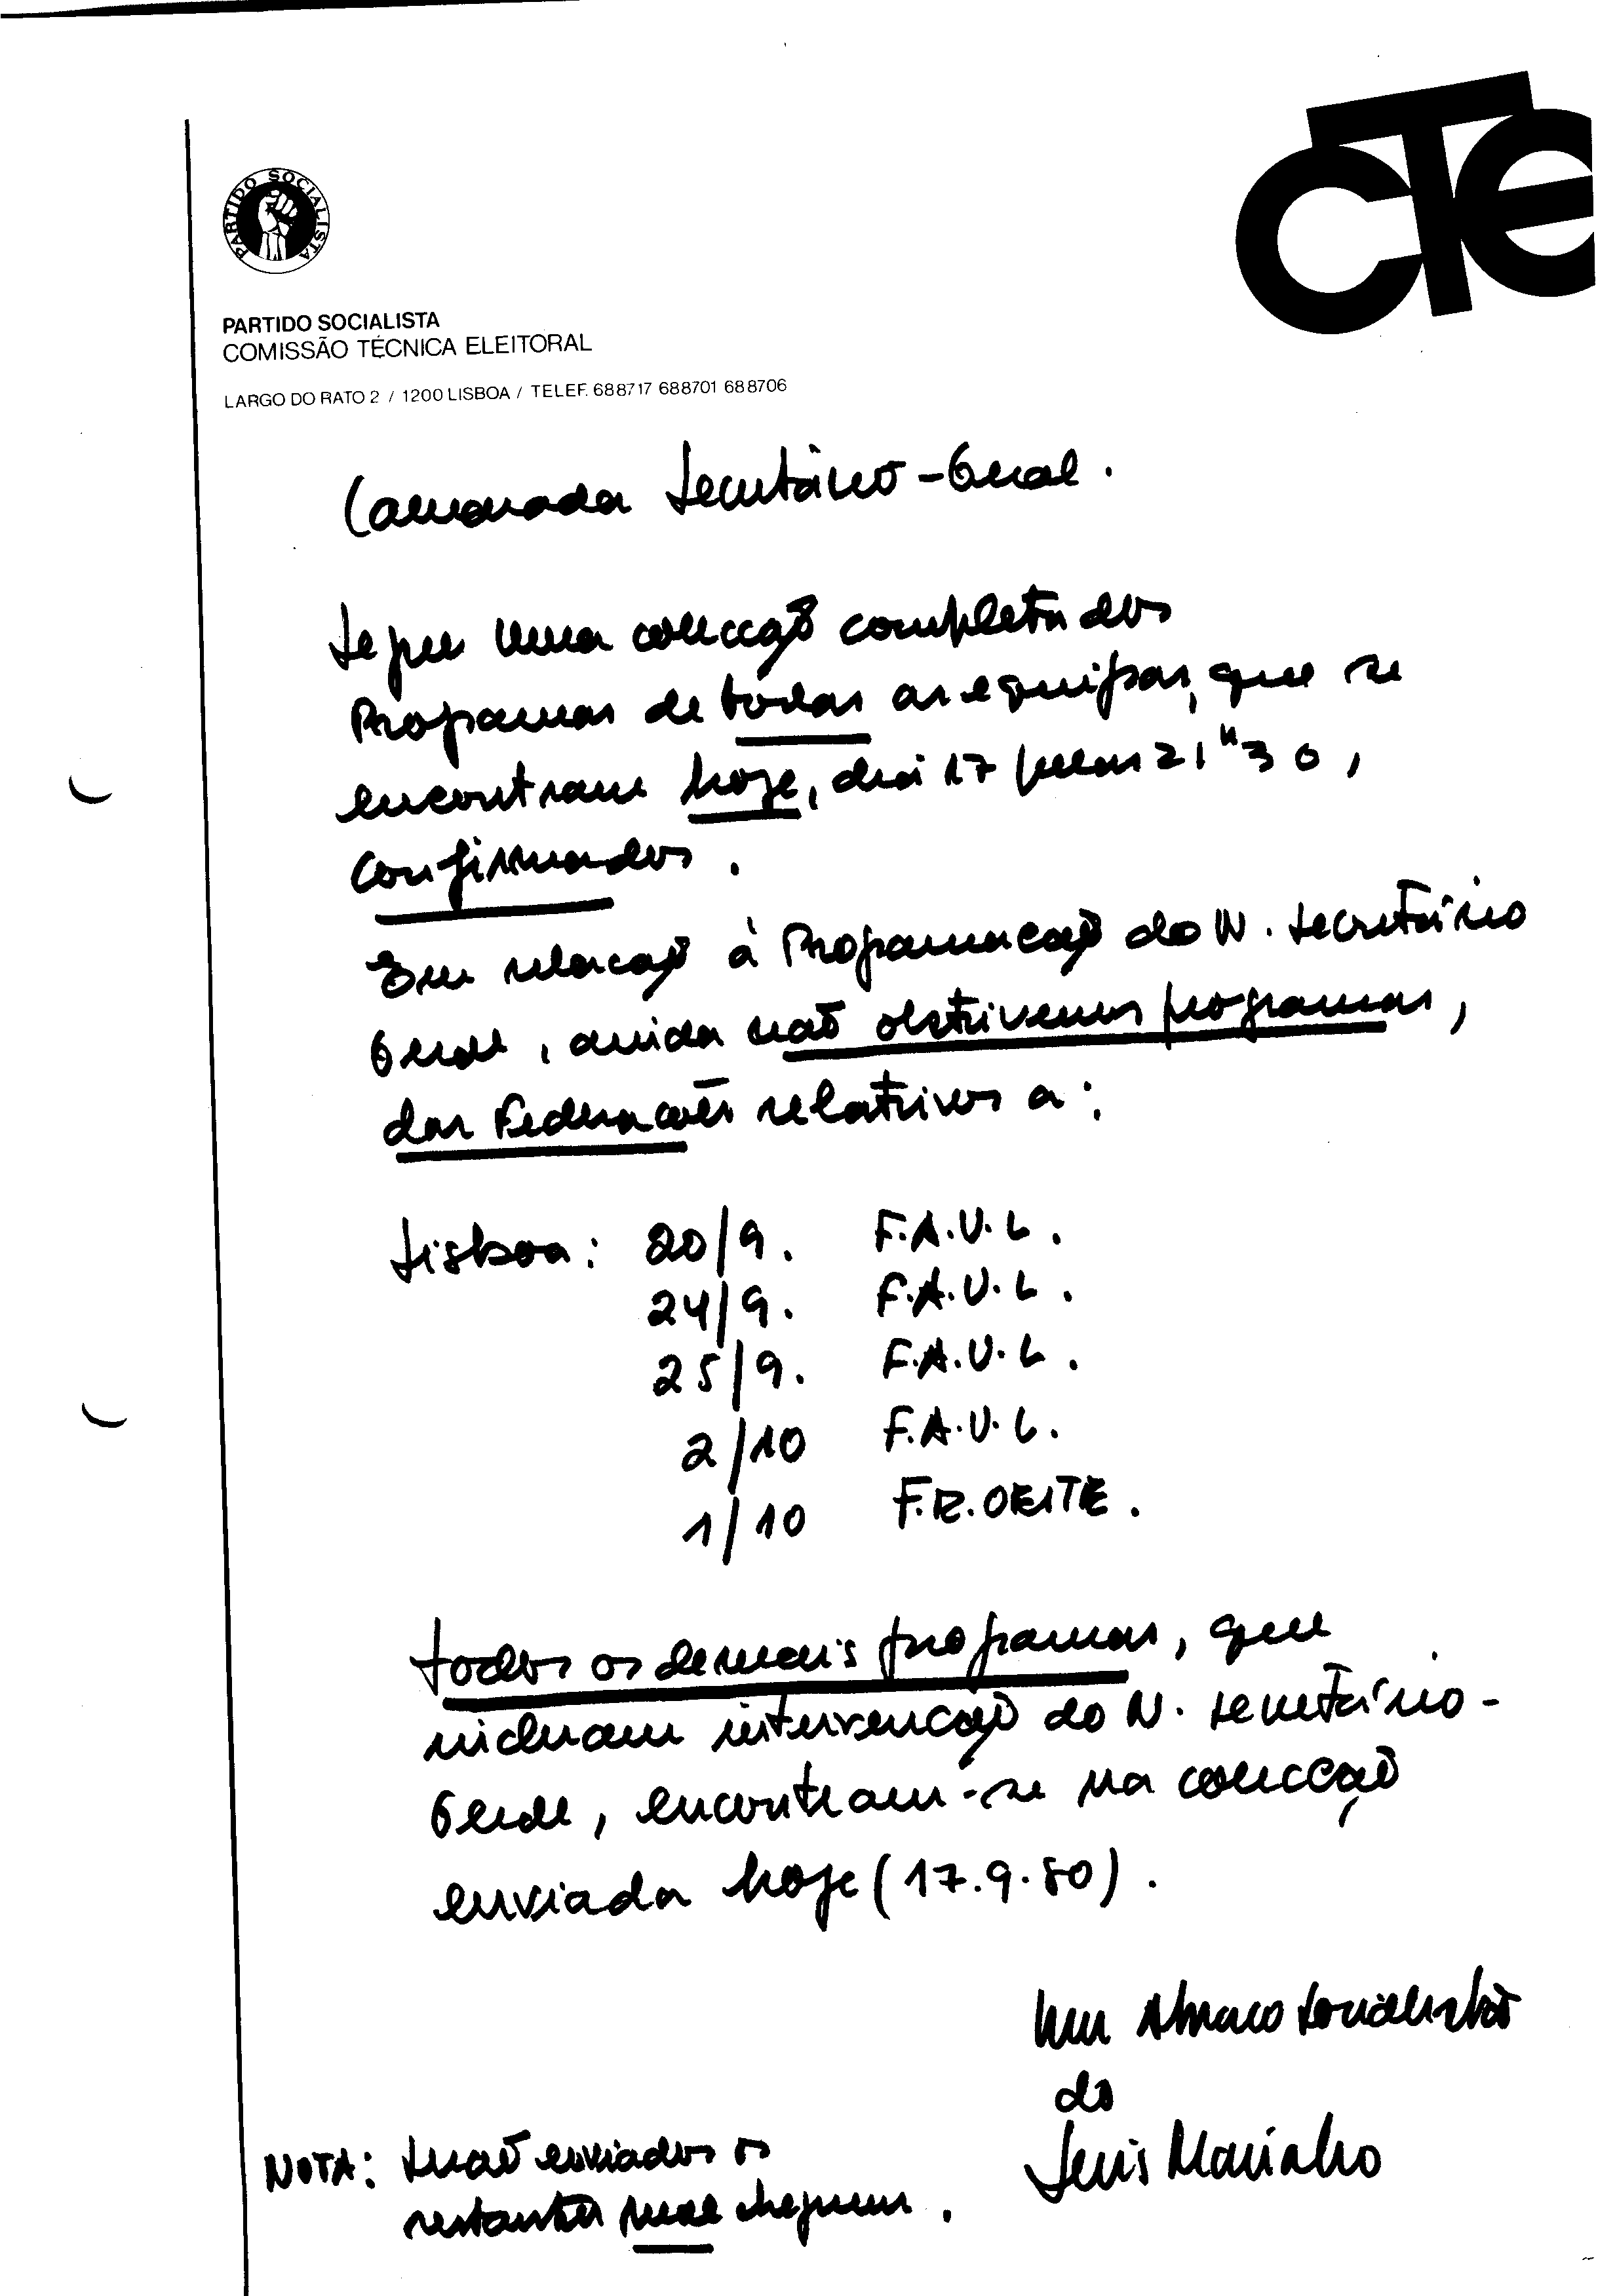 CTE
PARTIDO SOCIALISTA
PARTIDO SOCIALISTA
COMISSÃO TÉCNICA ELEITORAL
LARGO DO RATO 2 / 1200 LISBOA / TELEF. 688717 688701 688706
Camarada Secretário-Geral.
Segue uma colecção completa dos
Programas de todas as equipas, que se
encontram hoje, dia 17 pelas 21H30,
confirmados.
Em relação à Programação do N. Secretário
Geral, ainda não obtivemos programas,
das Federações relativos a:
Lisboa: 20/9. F.A.U.L.
24/9. F.A.U.L.
25/9. F.A.U.L.
2/10 F.A.U.L.
1/10 F.R.OESTE.
todos os demais programas, que
incluam intervenção do N. Secretário-
Geral, encontram-se na colecção
enviada hoje (17.9.80).
Um Abraço Socialista
do
Luis Marinho
NOTA: Serão enviados os
restantes mal cheguem.